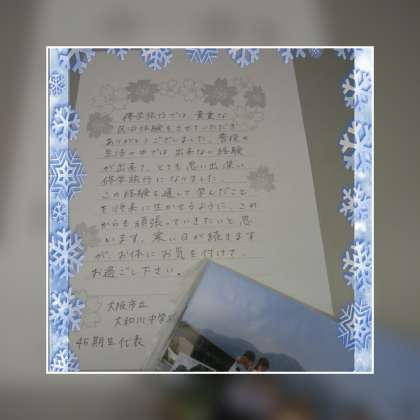 修学旅行では、貴重な
民泊体験をさせていただき
ありがとうございました。普段の
生活の中では出来ない経験
が出来て、とても思い出深い
修学旅行になりました。
この経験を通して学んだこと
を将来に生かせるように、これ
からも頑張っていきたいと思
います。寒い日が続きます
が、お体にお気を付けて、
お過ごし下さい。
大阪市立
大和川中学校
46期生代表